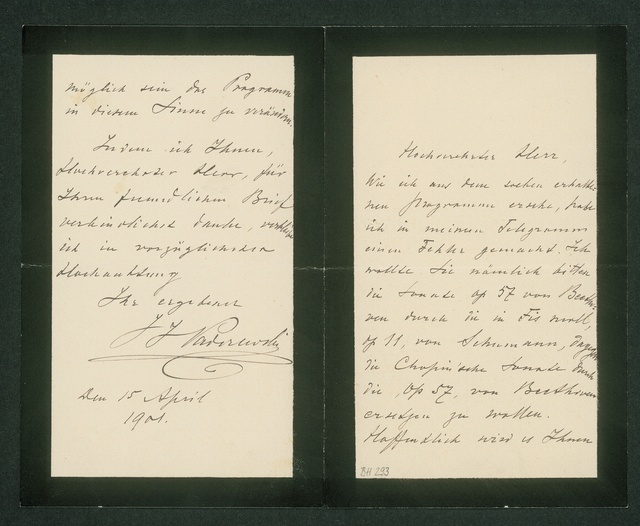 Hochverehrter Herr,
Wie ich aus dem soeben erhalte-
nen Programme ersehe, habe
ich in meinem Telegramm
einen Fehler gemacht. Ich
wollte Sie nämlich bitten
die Sonate op 57 von Beetho-
ven durch die in Fis moll,
op 11, von Schumann, dagegen
die Chopin'sche Sonate durch
die Op 57, von Beethoven
ersetzen zu wollen.
Hoffentlich wird es Ihnen
BH 293
möglich sein das Programm
in diesem Sinne zu verändern.
Indem ich Ihnen,
Hochverehrter Herr, für
Ihren freundlichen Brief
verbindlichst danke, verbleibe
ich in vorzüglichster
Hochachtung
Ihr ergebener
I J Paderewski
Den 15 April
1901.